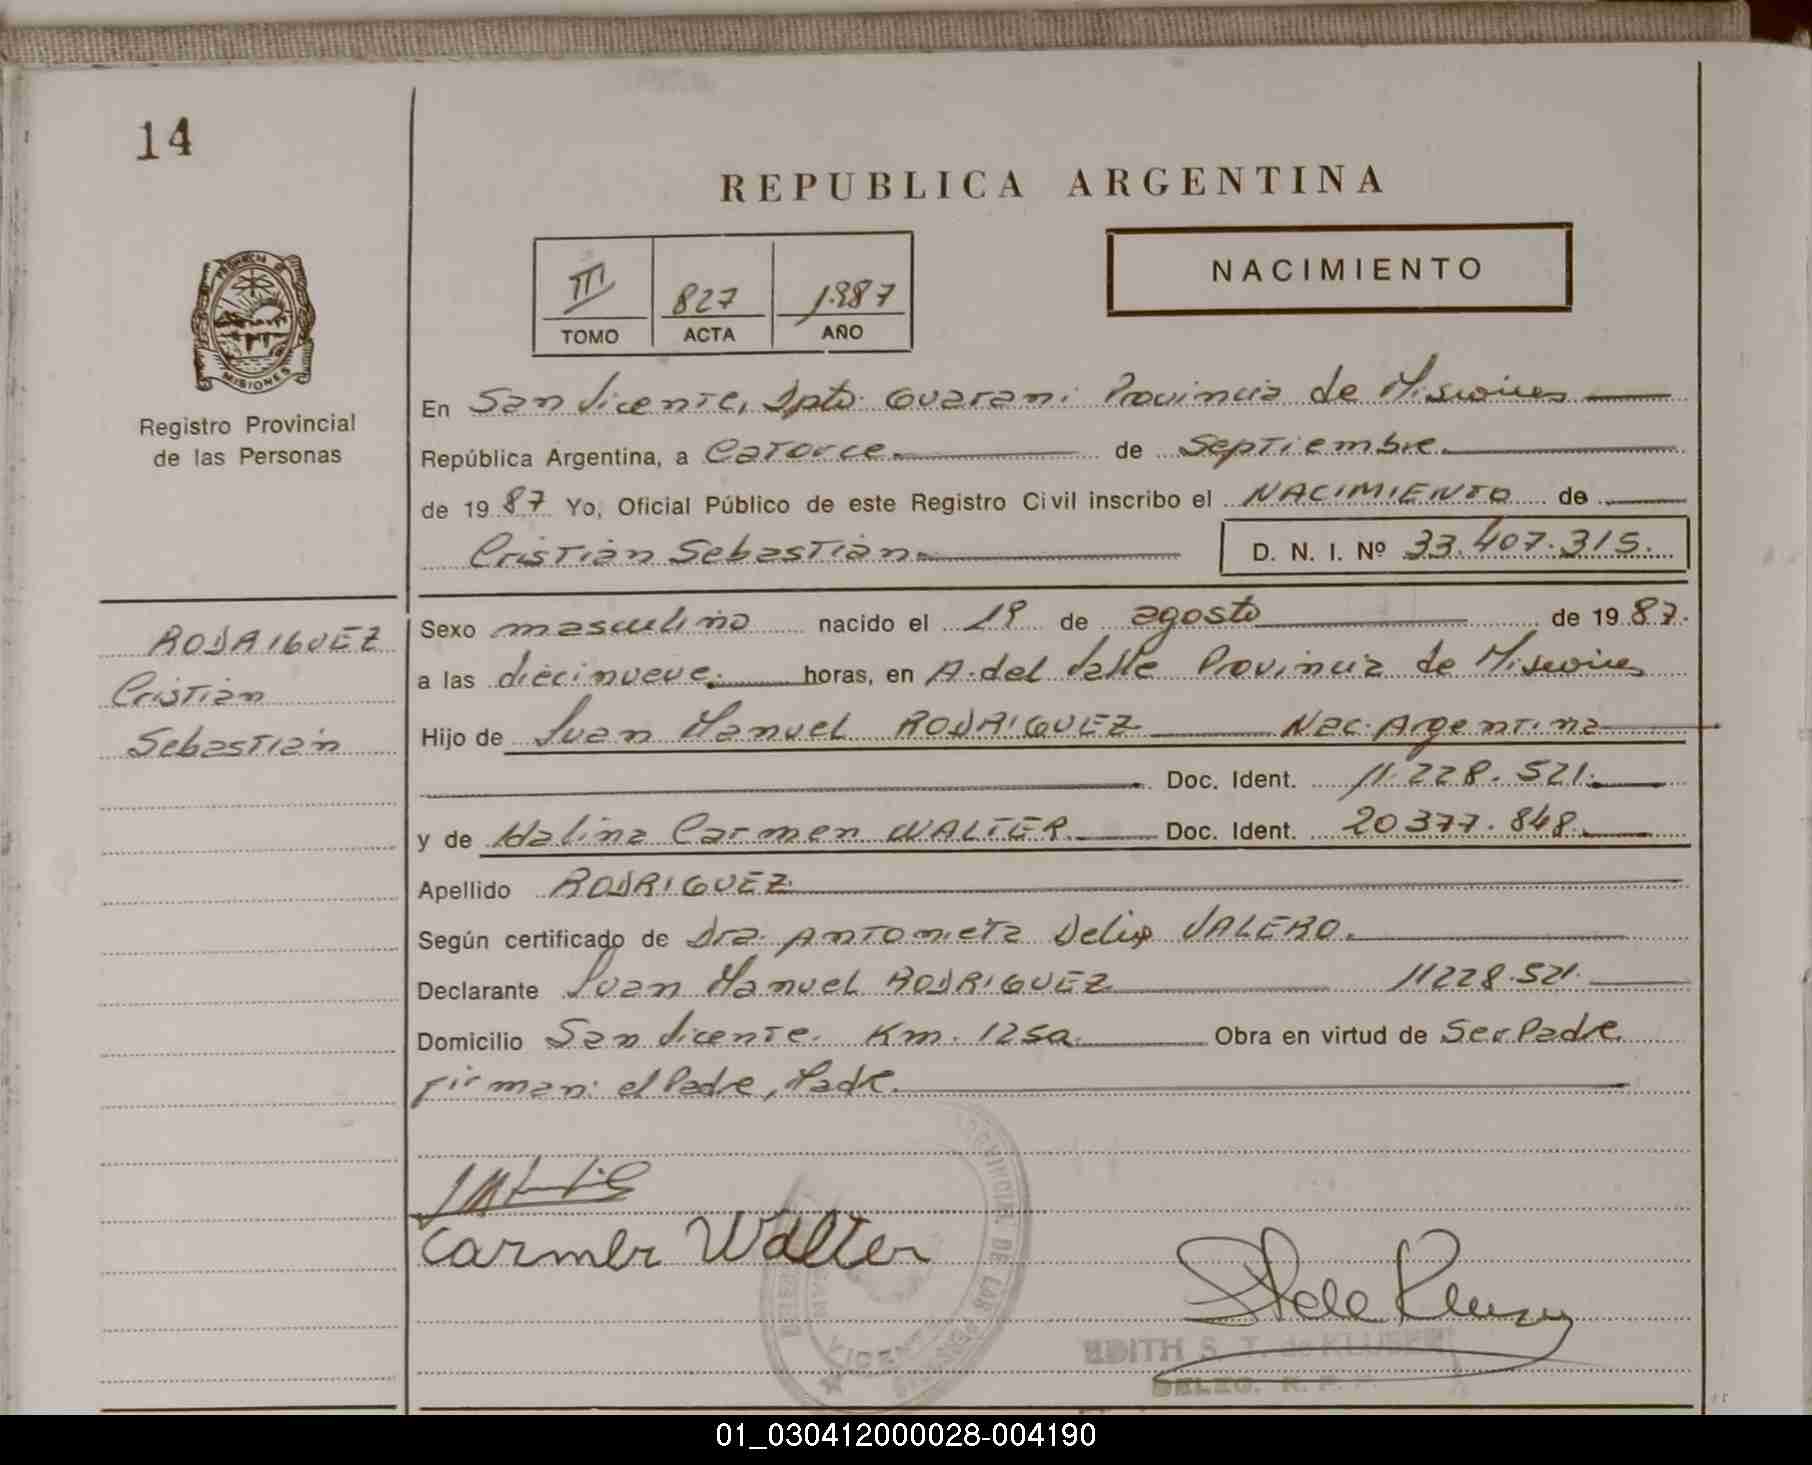 14
REPUBLICA ARGENTINA
NACIMIENTO
III 827 1987
TOMO ACTA AÑO
PROVINCIA DE
MISIONES
Registro Provincial
de las Personas
En San Vicente, Dpto. Guarani Provincia de Misiones
República Argentina, a Catorce de Septiembre
de 1987 Yo, Oficial Público de este Registro Civil inscribo el NACIMIENTO de
Cristian Sebastian D. N. I. Nº 33.407.315.
RODRIGUEZ
Cristian
Sebastian
Sexo masculino nacido el 19 de agosto de 1987.
a las diecinueve horas, en A. del Valle Provincia de Misiones
Hijo de Juan Manuel RODRIGUEZ Nac. Argentina
Doc. Ident. 11.228.521.
y de Idalina Carmen WALTER. Doc. Ident. 20377.848.
Apellido RODRIGUEZ
Según certificado de Dra. Antonieta Delia VALERO.
Declarante Juan Manuel RODRIGUEZ 11228.521.
Domicilio San Vicente. Km. 1250. Obra en virtud de Ser Padre.
Firman: el Padre, Madre.
Carmen Walter
EDITH S. T. de
DELEG. R. P. P.
01_030412000028-004190